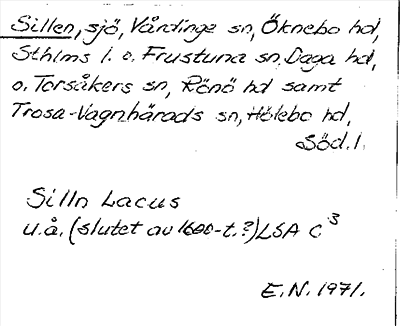 Sillen, sjö, Vårdinge sn, Öknebo hd,
Sthlms l. o. Frustuna sn, Daga hd,
o. Torsåkers sn, Rönö hd samt
Trosa-Vagnhärads sn, Hölebo hd,
Söd. l.
Silln Lacus
u.å. (slutet av 1600-t.?) LSA C³
E.N. 1971.